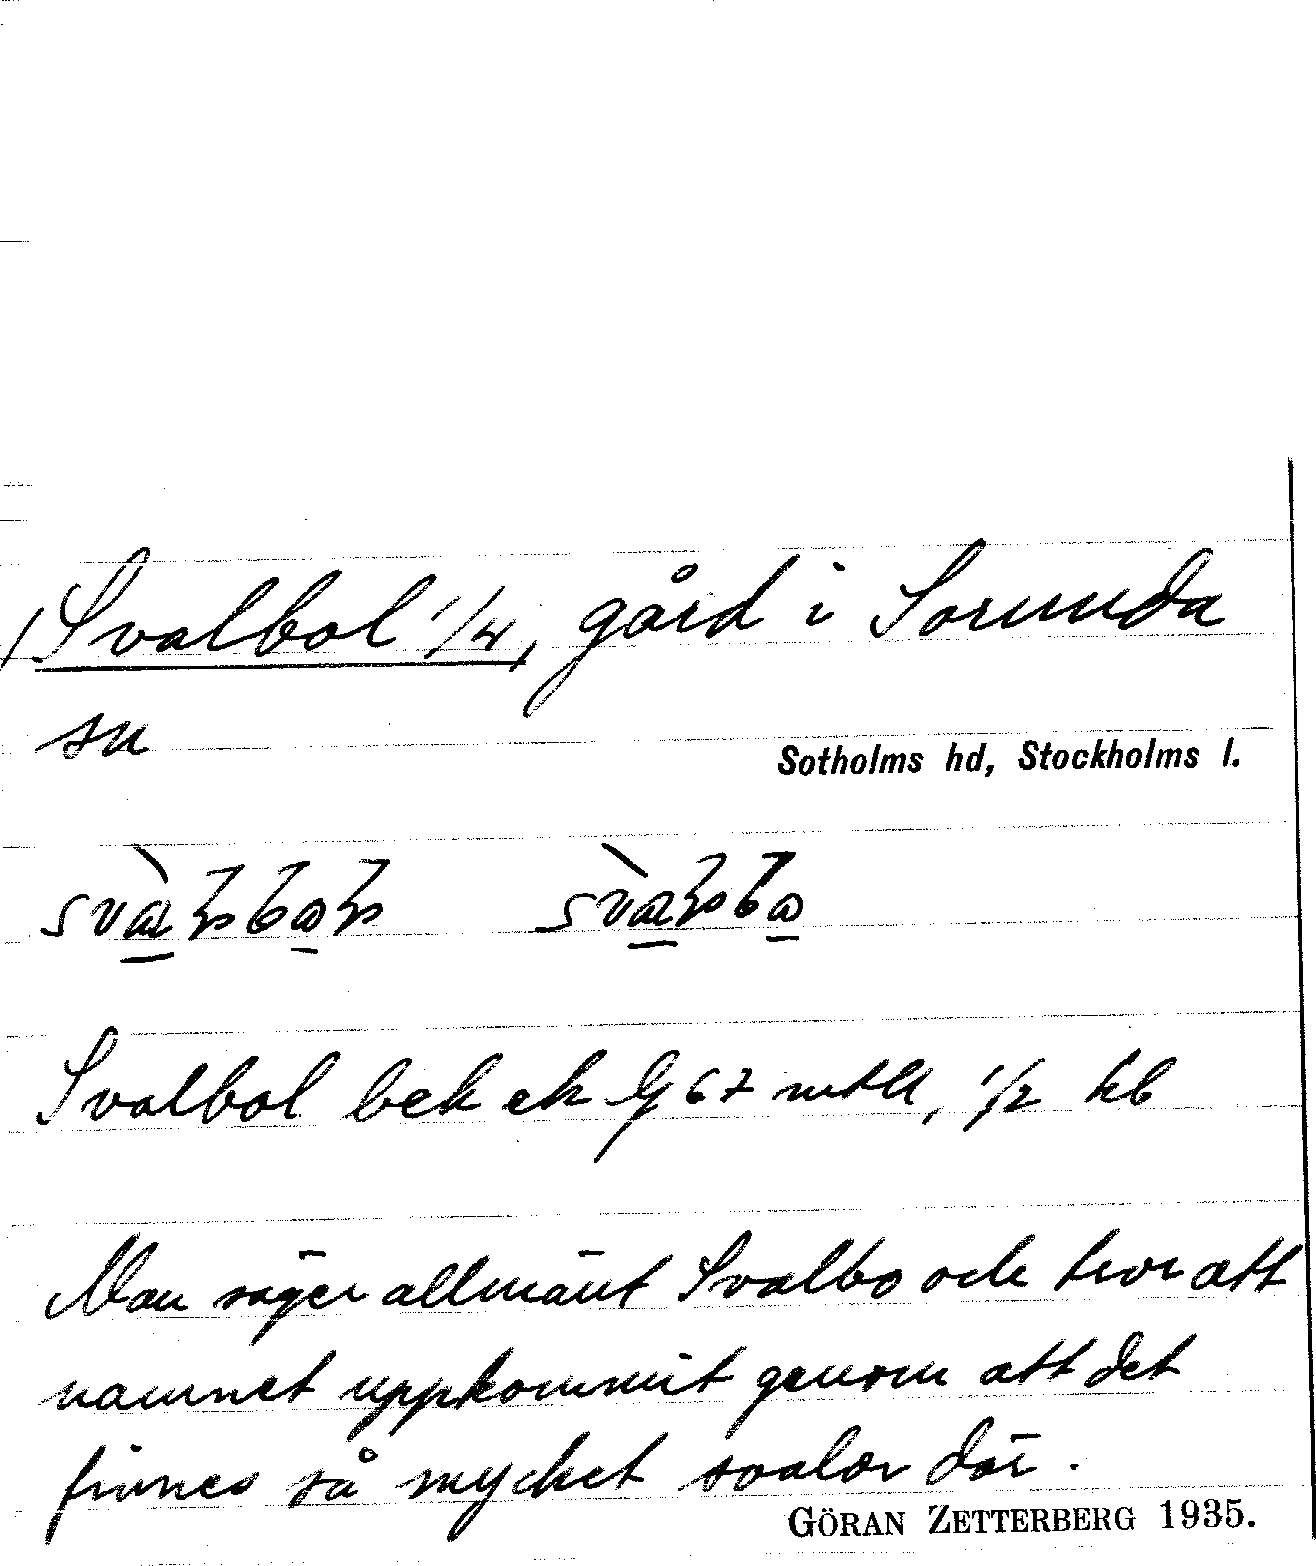 Svalbol 1/4, gård i Sorunda
sn
Sotholms hd, Stockholms l.
Svalbol bek ek Jb 67 mtl, 1/2 hb
Man säger allmänt Svalbo och tror att
namnet uppkommit genom att det
finnes så mycket svalor där.
GÖRAN ZETTERBERG 1935.